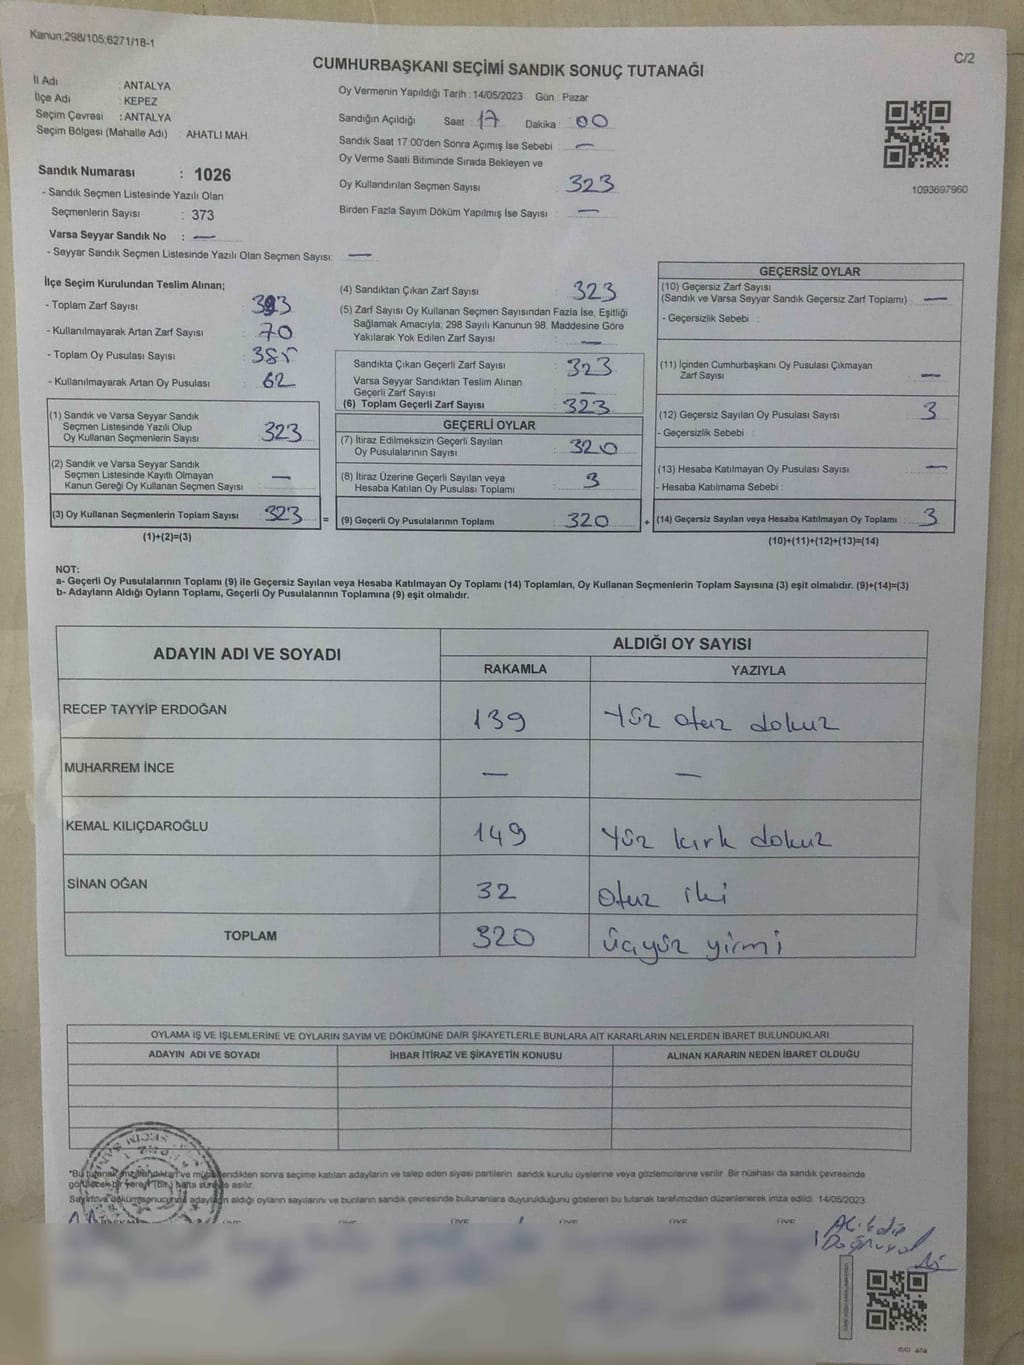 Kanun:298/105;6271/18-1
C/2
CUMHURBAŞKANI SEÇİMİ SANDIK SONUÇ TUTANAĞI
İl Adı : ANTALYA
İlçe Adı : KEPEZ
Seçim Çevresi : ANTALYA
Seçim Bölgesi (Mahalle Adı) : AHATLI MAH.
Sandık Numarası : 1026
- Sandık Seçmen Listesinde Yazılı Olan
Seçmenlerin Sayısı : 373
Varsa Seyyar Sandık No : —
- Seyyar Sandık Seçmen Listesinde Yazılı Olan Seçmen Sayısı: —
Oy Vermenin Yapıldığı Tarih : 14/05/2023 Gün : Pazar
Sandığın Açıldığı Saat : 17 Dakika : 00
Sandık Saat 17:00'den Sonra Açımış İse Sebebi : —
Oy Verme Saati Bitiminde Sırada Bekleyen ve
Oy Kullandırılan Seçmen Sayısı : 323
Birden Fazla Sayım Döküm Yapılmış İse Sayısı : —
1093697960
İlçe Seçim Kurulundan Teslim Alınan;
- Toplam Zarf Sayısı : 393
- Kullanılmayarak Artan Zarf Sayısı : 70
- Toplam Oy Pusulası Sayısı : 385
- Kullanılmayarak Artan Oy Pusulası : 62
(1) Sandık ve Varsa Seyyar Sandık
Seçmen Listesinde Yazılı Olup
Oy Kullanan Seçmenlerin Sayısı : 323
(2) Sandık ve Varsa Seyyar Sandık
Seçmen Listesinde Kayıtlı Olmayan
Kanun Gereği Oy Kullanan Seçmen Sayısı : —
(3) Oy Kullanan Seçmenlerin Toplam Sayısı : 323 =
(1)+(2)=(3)
(4) Sandıktan Çıkan Zarf Sayısı : 323
(5) Zarf Sayısı Oy Kullanan Seçmen Sayısından Fazla İse, Eşitliği
Sağlamak Amacıyla; 298 Sayılı Kanunun 98. Maddesine Göre
Yakılarak Yok Edilen Zarf Sayısı : —
Sandıkta Çıkan Geçerli Zarf Sayısı : 323
Varsa Seyyar Sandıktan Teslim Alınan
Geçerli Zarf Sayısı : —
(6) Toplam Geçerli Zarf Sayısı : 323
GEÇERLİ OYLAR
(7) İtiraz Edilmeksizin Geçerli Sayılan
Oy Pusulalarının Sayısı : 320
(8) İtiraz Üzerine Geçerli Sayılan veya
Hesaba Katılan Oy Pusulası Toplamı : 3
(9) Geçerli Oy Pusulalarının Toplamı : 320 +
GEÇERSİZ OYLAR
(10) Geçersiz Zarf Sayısı
(Sandık ve Varsa Seyyar Sandık Geçersiz Zarf Toplamı) : —
- Geçersizlik Sebebi :
(11) İçinden Cumhurbaşkanı Oy Pusulası Çıkmayan
Zarf Sayısı : —
(12) Geçersiz Sayılan Oy Pusulası Sayısı : 3
- Geçersizlik Sebebi :
(13) Hesaba Katılmayan Oy Pusulası Sayısı : —
- Hesaba Katılmama Sebebi :
(14) Geçersiz Sayılan veya Hesaba Katılmayan Oy Toplamı : 3
(10)+(11)+(12)+(13)=(14)
NOT:
a- Geçerli Oy Pusulalarının Toplamı (9) ile Geçersiz Sayılan veya Hesaba Katılmayan Oy Toplamı (14) Toplamları, Oy Kullanan Seçmenlerin Toplam Sayısına (3) eşit olmalıdır. (9)+(14)=(3)
b- Adayların Aldığı Oyların Toplamı, Geçerli Oy Pusulalarının Toplamına (9) eşit olmalıdır.
ADAYIN ADI VE SOYADI
ALDIĞI OY SAYISI
RAKAMLA YAZIYLA
RECEP TAYYİP ERDOĞAN 139 Yüz otuz dokuz
MUHARREM İNCE — —
KEMAL KILIÇDAROĞLU 149 Yüz kırk dokuz
SİNAN OĞAN 32 otuz iki
TOPLAM 320 üçyüz yirmi
OYLAMA İŞ VE İŞLEMLERİNE VE OYLARIN SAYIM VE DÖKÜMÜNE DAİR ŞİKAYETLERLE BUNLARA AİT KARARLARIN NELERDEN İBARET BULUNDUKLARI
ADAYIN ADI VE SOYADI İHBAR İTİRAZ VE ŞİKAYETİN KONUSU ALINAN KARARIN NEDEN İBARET OLDUĞU
sonra seçime katılan adayların ve talep eden siyasi partilerin sandık kurulu üyelerine veya gözlemcilerine verilir. Bir nüshası da sandık çevresinde
asılır.
aldığı oyların sayılarını ve bunların sandık çevresinde bulunanlara duyurulduğunu gösteren bu tutanak tarafımızdan düzenlenerek imza edildi. 14/05/2023